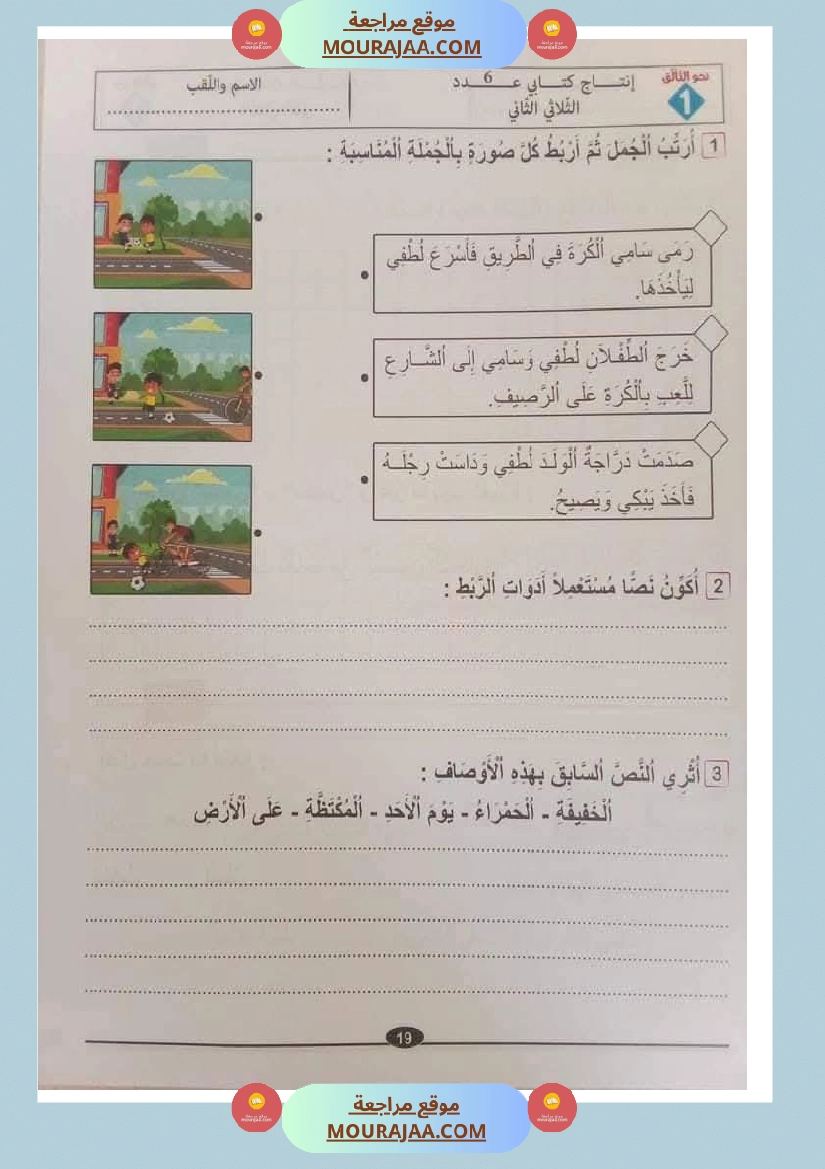 موقع مراجعة
MOURAJAA.COM
نحو التألق
1
إنتـــاج كتـــابي عـــ6ـــدد
الثّلاثي الثّاني
الاسم واللّقب
1 أُرَتِّبُ ٱلْجُمَلَ ثُمَّ أَرْبُطُ كُلَّ صُورَةٍ بِٱلْجُمْلَةِ ٱلْمُنَاسِبَةِ :
رَمَى سَامِي ٱلْكُرَةَ فِي ٱلطَّرِيقِ فَأَسْرَعَ لُطْفِي
لِيَأْخُذَهَا.
خَرَجَ ٱلطِّفْلَانِ لُطْفِي وَسَامِي إِلَى ٱلشَّارِعِ
لِلَّعِبِ بِٱلْكُرَةِ عَلَى ٱلرَّصِيفِ.
صَدَمَتْ دَرَّاجَةٌ ٱلْوَلَدَ لُطْفِي وَدَاسَتْ رِجْلَهُ
فَأَخَذَ يَبْكِي وَيَصِيحُ.
2 أُكَوِّنُ نَصًّا مُسْتَعْمِلاً أَدَوَاتِ ٱلرَّبْطِ :
3 أُثْرِي ٱلنَّصَّ ٱلسَّابِقَ بِهَذِهِ ٱلْأَوْصَافِ :
ٱلْخَفِيفَةِ - ٱلْحَمْرَاءُ - يَوْمَ ٱلْأَحَدِ - ٱلْمُكْتَظَّةِ - عَلَى ٱلْأَرْضِ
19
موقع مراجعة
MOURAJAA.COM